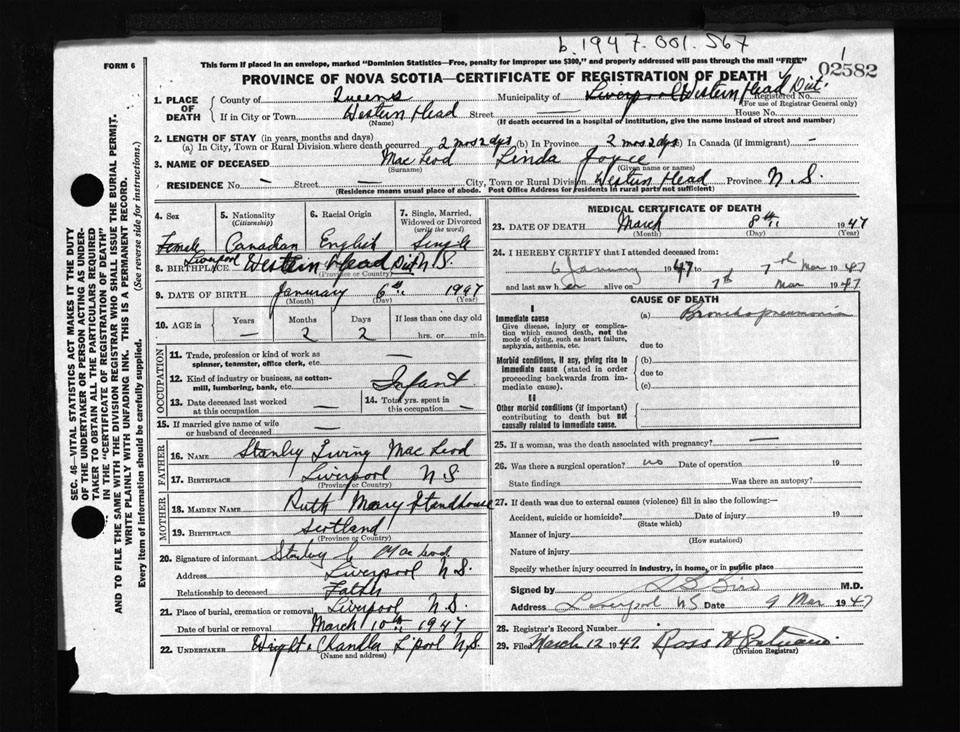 b.1947.001.567
FORM 6
This form if placed in an envelope, marked "Dominion Statistics—Free, penalty for improper use $300," and properly addressed will pass through the mail "FREE"
1
02582
PROVINCE OF NOVA SCOTIA—CERTIFICATE OF REGISTRATION OF DEATH
1. PLACE OF DEATH
County of Queens Municipality of Liverpool Western Head Dist. Registered No.
(For use of Registrar General only)
If in City or Town Western Head Street — House No.
(Name) (If death occurred in a hospital or institution, give the name instead of street and number)
2. LENGTH OF STAY (in years, months and days)
(a) In City, Town or Rural Division where death occurred 2 mos 2 dys (b) In Province 2 mos 2 dys (c) In Canada (if immigrant) —
3. NAME OF DECEASED Mac Leod Linda Joyce
(Surname) (Given name or names)
RESIDENCE No. — Street — City, Town or Rural Division Western Head Province N.S.
(Residence means usual place of abode. Post Office Address for residents in rural parts not sufficient)
4. Sex Female
5. Nationality (Citizenship) Canadian
6. Racial Origin English
7. Single, Married, Widowed or Divorced (write the word) Single
8. BIRTHPLACE Liverpool Western Head Dist N.S.
(Province or Country)
9. DATE OF BIRTH January 6th. 1947
(Month) (Day) (Year)
10. AGE in Years — Months 2 Days 2 If less than one day old hrs. or min.
OCCUPATION
11. Trade, profession or kind of work as spinner, teamster, office clerk, etc. —
12. Kind of industry or business, as cotton-mill, lumbering, bank, etc. Infant
13. Date deceased last worked at this occupation —
14. Total yrs. spent in this occupation —
15. If married give name of wife or husband of deceased —
FATHER
16. NAME Stanley Irving Mac Leod
17. BIRTHPLACE Liverpool N.S.
(Province or Country)
MOTHER
18. MAIDEN NAME Ruth Mary
19. BIRTHPLACE Scotland
(Province or Country)
20. Signature of informant Stanley Mac Leod
Address Liverpool N.S.
Relationship to deceased Father
21. Place of burial, cremation or removal Liverpool N.S.
Date of burial or removal March 10th 1947
22. UNDERTAKER Wright & Chandler L'pool N.S.
(Name and address)
MEDICAL CERTIFICATE OF DEATH
23. DATE OF DEATH March 8th. 1947
(Month) (Day) (Year)
24. I HEREBY CERTIFY that I attended deceased from:
6 January 1947 to 7 Mar 1947
and last saw her alive on 7th Mar 1947
CAUSE OF DEATH
I
Immediate cause
Give disease, injury or complication which caused death, not the mode of dying, such as heart failure, asphyxia, asthenia, etc.
(a) Bronchopneumonia
due to
Morbid conditions, if any, giving rise to immediate cause (stated in order proceeding backwards from immediate cause).
(b)
due to
(c)
II
Other morbid conditions (if important) contributing to death but not causally related to immediate cause.
25. If a woman, was the death associated with pregnancy? —
26. Was there a surgical operation? no Date of operation 19
State findings Was there an autopsy?
27. If death was due to external causes (violence) fill in also the following:—
Accident, suicide or homicide? Date of injury 19
(State which)
Manner of injury
(How sustained)
Nature of injury
Specify whether injury occurred in industry, in home, or in public place
Signed by Bird M.D.
Address Liverpool NS Date 9 Mar 1947
28. Registrar's Record Number
29. Filed March 12 1947. Ross H
(Division Registrar)
SEC. 46—VITAL STATISTICS ACT MAKES IT THE DUTY OF THE UNDERTAKER OR PERSON ACTING AS UNDERTAKER TO OBTAIN ALL THE PARTICULARS REQUIRED IN THE "CERTIFICATE OF REGISTRATION OF DEATH" AND TO FILE THE SAME WITH THE DIVISION REGISTRAR WHO SHALL ISSUE THE BURIAL PERMIT.
WRITE PLAINLY WITH UNFADING INK. THIS IS A PERMANENT RECORD.
Every item of information should be carefully supplied. (See reverse side for instructions.)